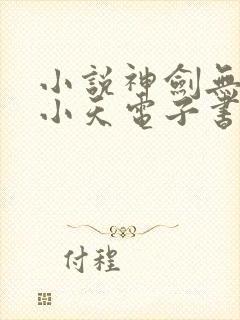 小說神劍無
小天電子書
付程